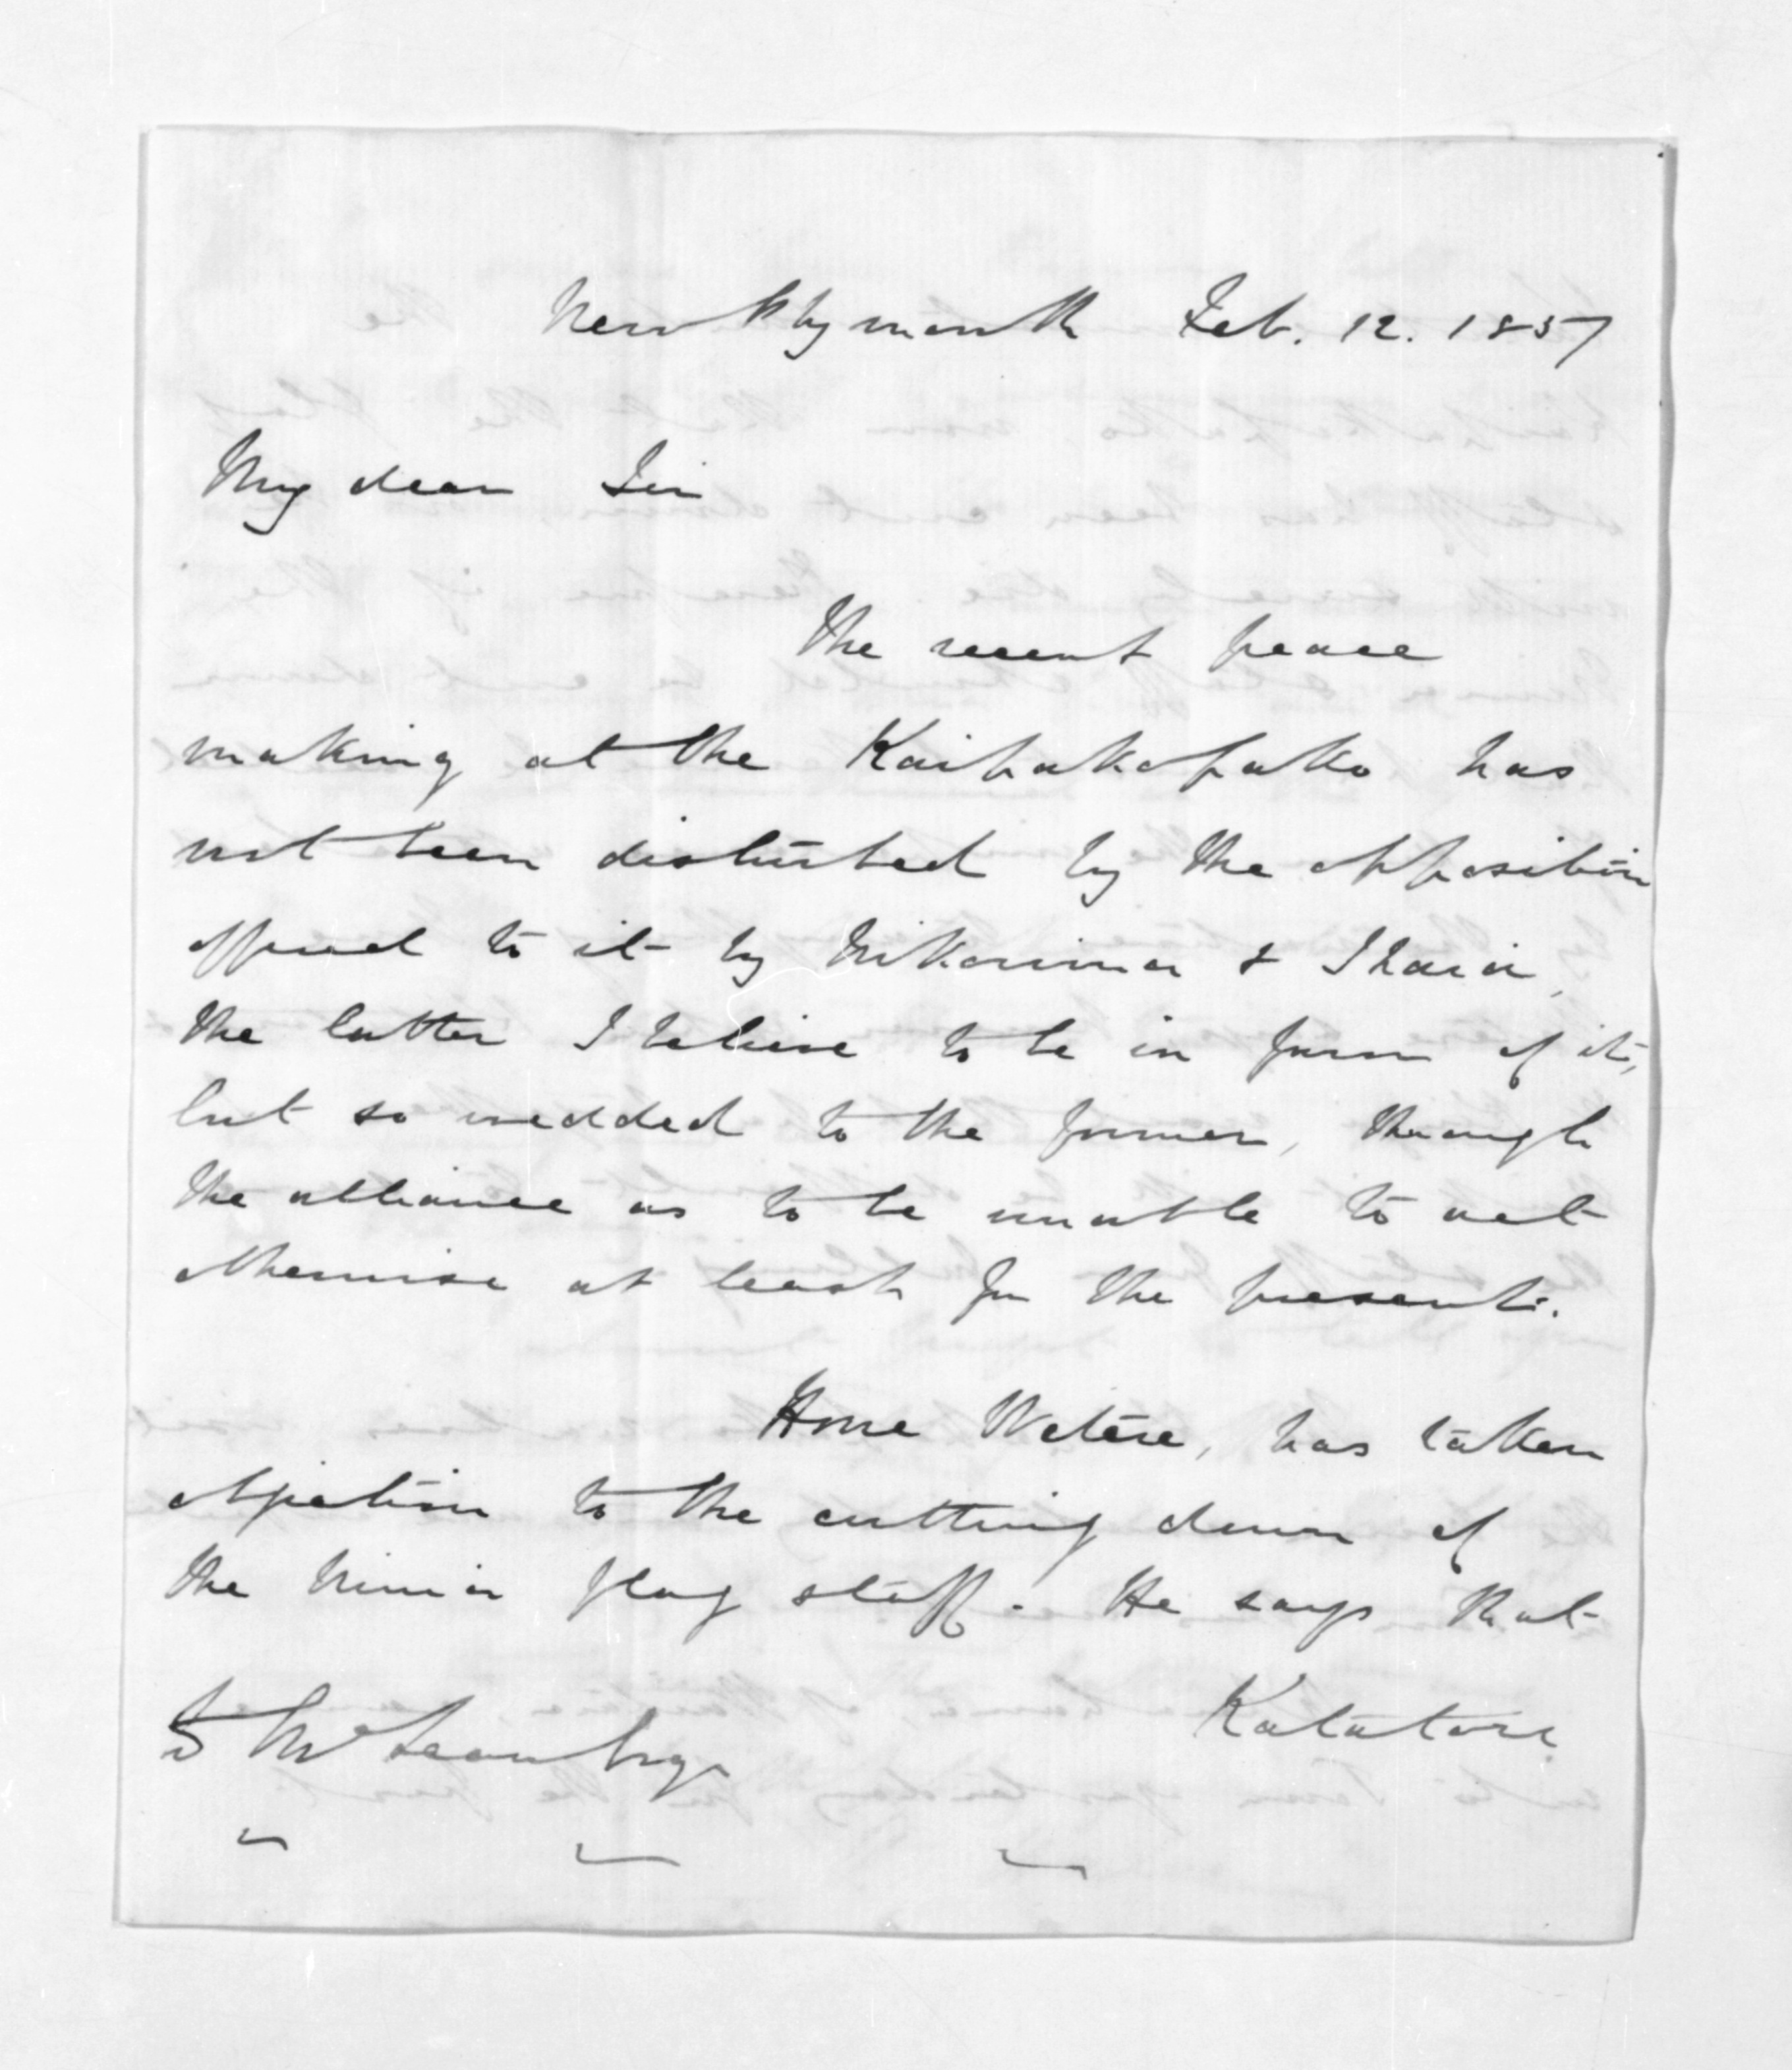 New Plymouth Feb. 12. 1857
My dear Sir
The recent peace
making at the Kaipakopako has
not been disturbed by the opposition
offered to it by Nikorima & Ihaia,
the latter I believe to be in favor of it,
but so wedded to the former, through
the alliance as to be unable to act
otherwise at least for the present.
Hone Wetere, has taken
objection to the cutting down of
the Ninia flag staff. He says that
Katatore
McLean Esqr